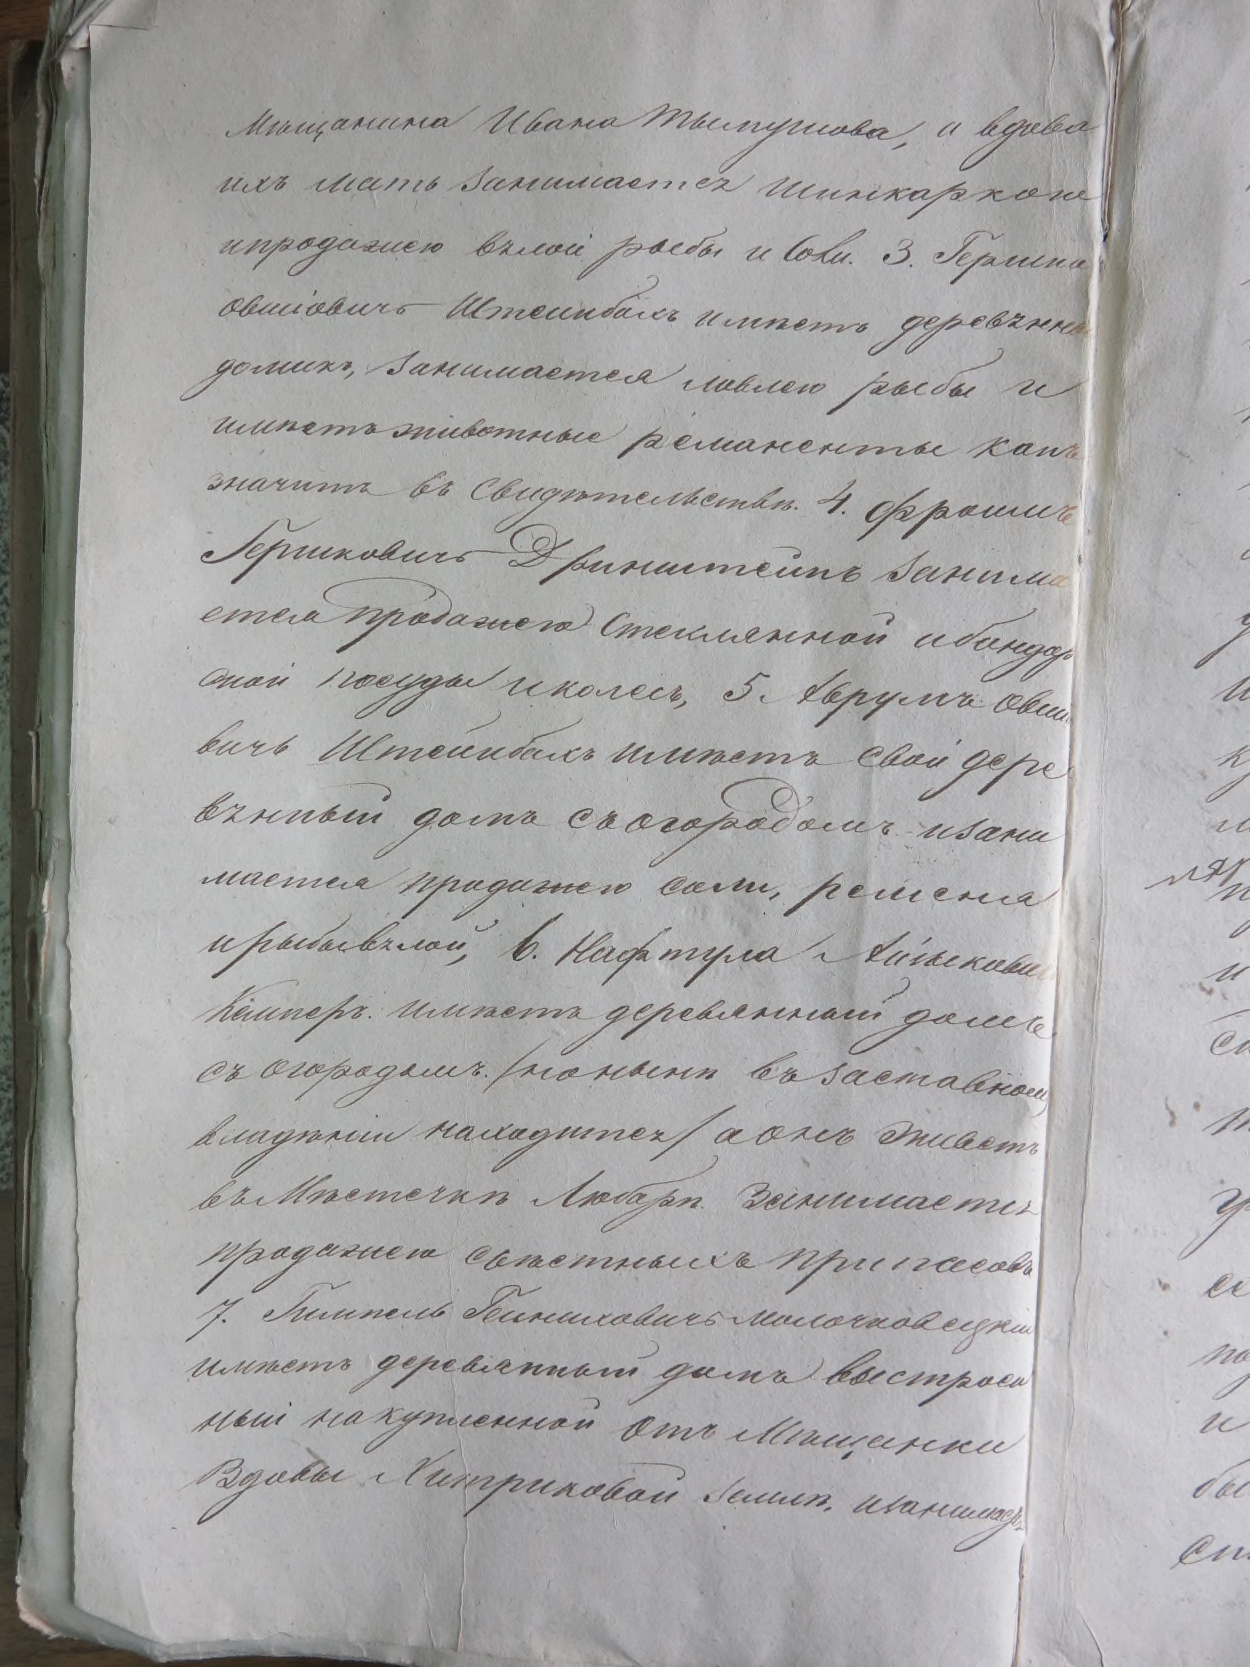 Мѣщанина Ивана Тымушова, и вдова
ихъ мать занимается шинкаркою
ипродажею вялой рыбы и Соли. 3. Гершко
Овшіовичъ Штеинбахъ имѣетъ деревянны
домикъ, занимается ловлею рыбы и
имѣетъ животные реманенты какъ
значитъ въ Свидѣтельствѣ. 4. Фроимъ
Гершковичъ Финштейнъ занима
ется продажею Стеклянной ибондар
ской посуды иколесъ, 5. Аврумъ Овшіо
вичъ Штейнбахъ имѣетъ свой дере
вянный домъ съогородомъ изани
мается продажею соли, ремена
ирыбывялой, 6. Нафтула Айзькович
Кемперъ. имѣетъ деревянный домъ
съ огородомъ. /но нынѣ въ заставном
владѣніи находится/ а онъ живетъ
въ Мѣстечкѣ Любарѣ. Занимается
продажею съѣстныхъ припасовъ
7. Гимпель Гейниховичъ Молочковецкій
имѣетъ деревянный домъ выстрое
ный накупленной отъ Мѣщанки
Вдовы Хитриковой землѣ, изанимает